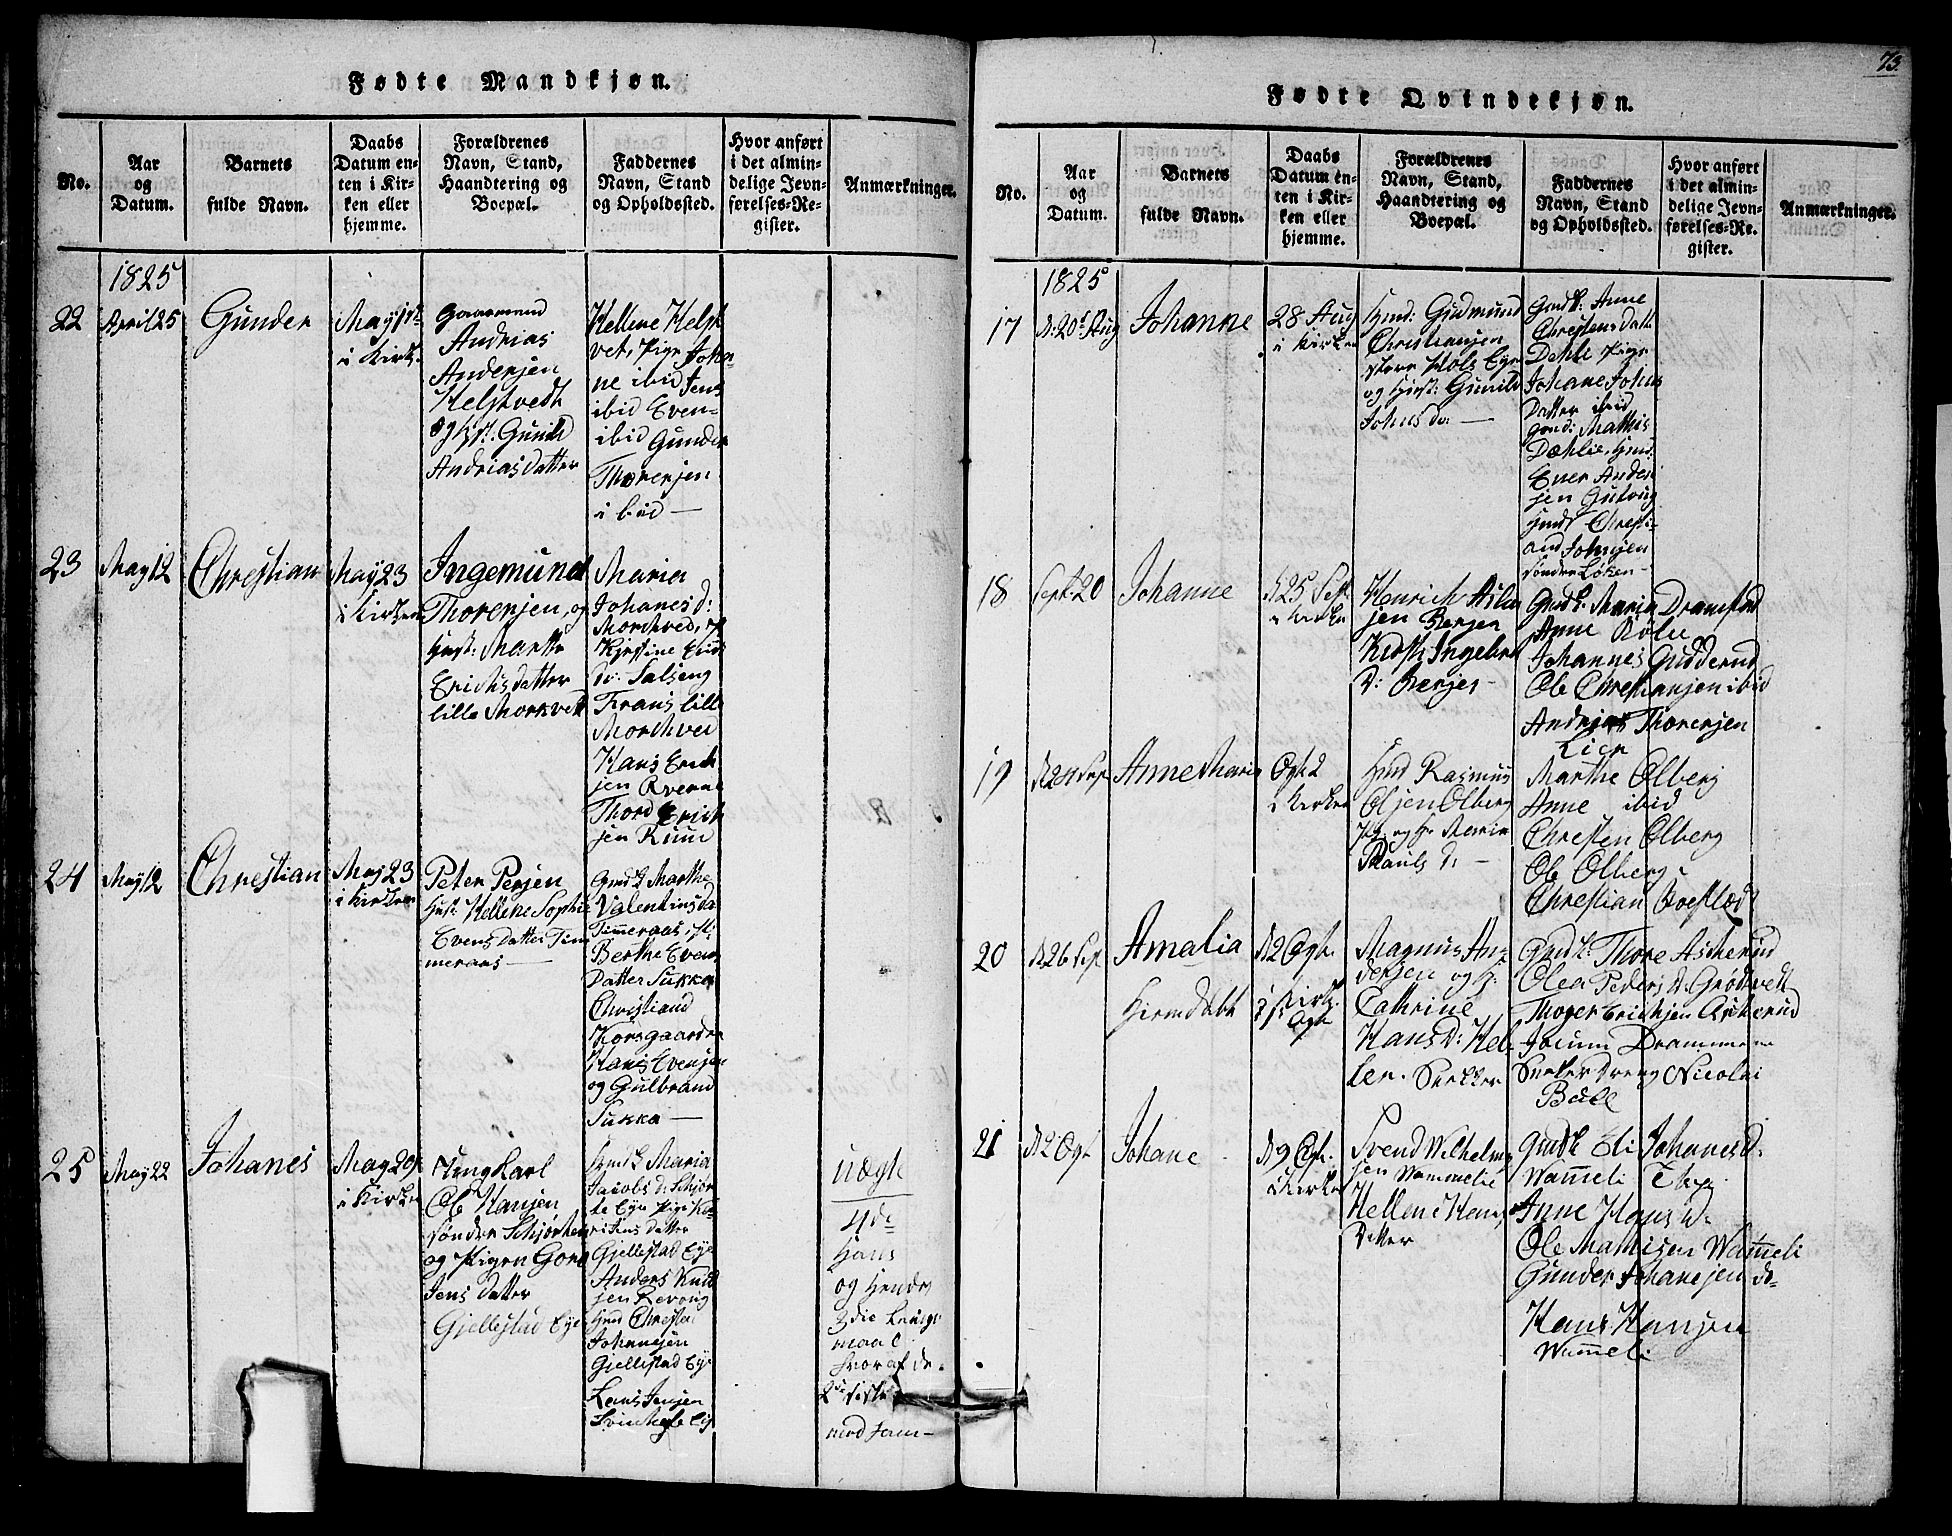 Fødte Mandkjøn.
No.
Aar
og
Datum.
Barnets
fulde Navn.
Daabs
Datum en-
ten i Kir-
ken eller
hjemme.
Forældrenes
Navn, Stand,
Haandtering og
Boepæl.
Faddernes
Navn, Stand
og Opholdssted.
Hvor anført
i det almin-
delige Jevn-
førelses-Re-
gister.
Anmærkninger.
1825
22
April 25
Gunder
May 1ste
i Kirk.
Gaardmand
Andrias
Andersen
Helstvedt
og Hst: Gunild
Andriasdatter
Hellene Helst
vet, Pige Johan
ne ibid Jens
ibid Even
ibid Gunder
Thorersen
ibid —
23
May 12
Christian
May 23
i Kirken
Ingemund
Thorersen, og
Hust: Marthe
Erichsdatter
lille Morkvedt
Maria
Johanes d:
Morchved,
Kjerstine Erichs
dr: Salseng
Frans lille
Morchved
Hans Erich
sen Rverne
Thord Erich
sen Ruud
24
May 12
Christian
May 23
i Kirken
Peter Persen
Hust: Hellene Sophie
Evens datter Tim
meraas —
Gmdk Marthe
Valentins da
Timmeraas,
Berthe Evens
Datter Sukka
Christiand
Korsgaarden
Hans Evensen
og Gulbrand
Sukka —
25
May 22
Johanes
May 29
i Kirken
Ungkarl
Ole Hansen
søndre Schjørten
og Pigen Gore
Jens datter
Gjellestad Eye
Gmdk Maria
Jacobs d: Schjør
te Eye Pige Ka
ri Jens datter
Gjellestad Eye
Anders Knud
sen Revoug
Hmd Christen
Johannesen
Gjellestad Eye
Lars Jensen
Svinhefle Ey
uægte
4de
Hans
og Hendes
3die Leiers
maal
hvoraf de
2de sidste
med ham —
73.
Fødte Qvindekjøn.
No.
Aar
og
Datum.
Barnets
fulde Navn.
Daabs
Datum en-
ten i Kir-
ken eller
hjemme.
Forældrenes
Navn, Stand,
Haandtering og
Boepæl.
Faddernes
Navn, Stand
og Opholdssted.
Hvor anført
i det almin-
delige Jevn-
førelses-Re-
gister.
Anmærkninger.
1825
17
d: 20de Aug
Johanne
28 Aug
i Kirken
Hmd: Gudmund
Christiansen
store Hols Eye
og Hust: Gunild
Johns dr: —
Gmdk: Anne
Christens datt
Dehli Pige
Johane Johns
Datter ibid
Gmd: Mathis
Dæhlie, Hmd:
Ener Ander
sen Gutvig
Hmd Christi-
and Johnsen
søndre Løken —
18
Sept. 20
Johanne
d 25 Sept
i Kirken
Henrich Aslac
sen Berjer
K: Ingebor
D: Berjer —
Gmdk. Maria Dramstad
Anne Rolie
Johannes Gudderud
Ole Christiansen ibid
Andrias Thorersen
Lier
19
d 24 Sept
Anne Maria
Octb 2
i Kirken
Hmd Rasmus
Olsen Olberg
og H: Maria
Pauls d: —
Marthe Olberg
Anne ibid
Christen Olberg
Ole Olberg
Christian
20
d 26 Sept
Amalia
Hiemdøbt
d 2 Octbr.
i Kirk.
1ste Octb
Magnus An-
dersen og H:
Cathrine
Hans D: Hel
ler. Snekker
Gmdk. Thore Ascherud
Olea Peders D. Grødtvedt
Thoger Erichsen Ascherud
Jocum Drammens
Snekker dreng Nicolai
Bull
21
d 2 Octb
Johane
d 9 Octb.
i Kirken
Svend Wilhelm
sen Wammelie
Hellene Hans
Datter
Gmdk Eli Johanes D:
Wammeli
Anne Hans d:
Ole Mathisen Wammeli
Gunder Johanesen do
Hans Hansen
Wammeli